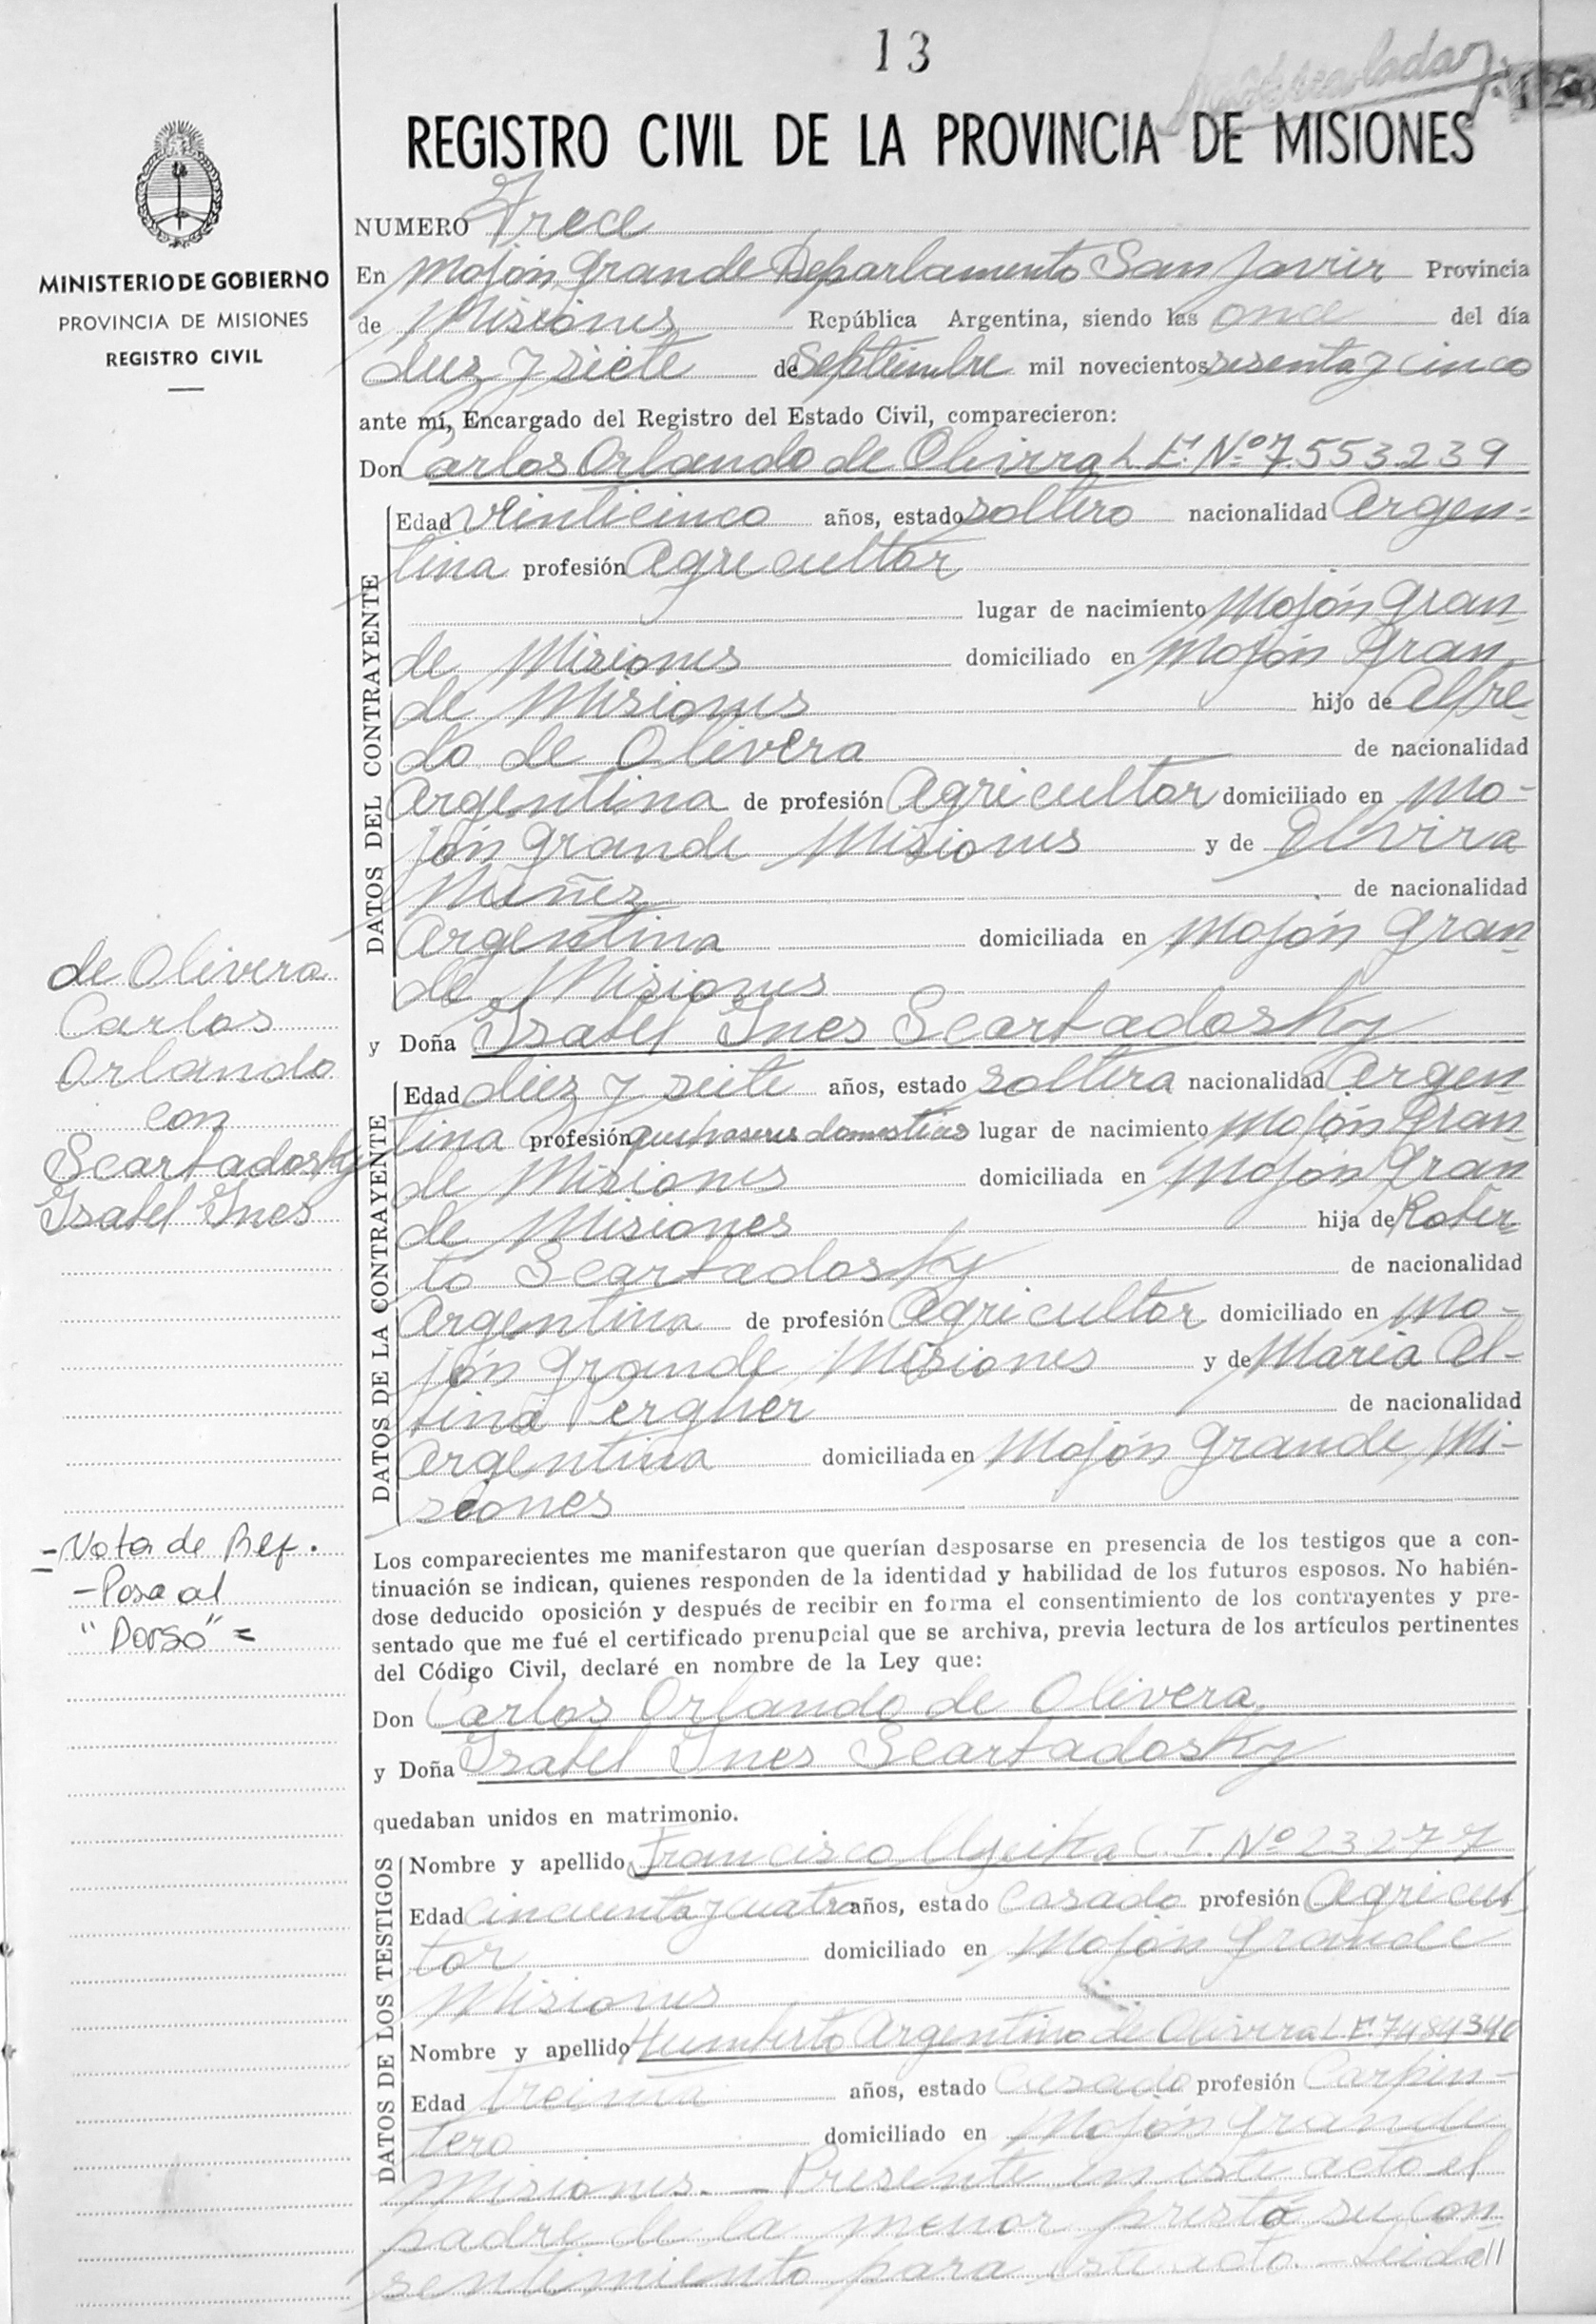 13
REGISTRO CIVIL DE LA PROVINCIA DE MISIONES
MINISTERIO DE GOBIERNO
PROVINCIA DE MISIONES
REGISTRO CIVIL
NUMERO Trece
En Mojón Grande Departamento San Javier Provincia
de Misiones República Argentina, siendo las once del día
diez y siete de Septiembre mil novecientos sesenta y cinco
ante mí, Encargado del Registro del Estado Civil, comparecieron:
Don Carlos Orlando de Olivera L.E. Nº 7.553.239
DATOS DEL CONTRAYENTE
Edad veinticinco años, estado soltero nacionalidad Argen-
tina profesión Agricultor
lugar de nacimiento Mojón Gran
de Misiones domiciliado en Mojón Gran
de Misiones hijo de Alfre
do de Olivera de nacionalidad
Argentina de profesión Agricultor domiciliado en Mo-
jón Grande Misiones y de
de nacionalidad
Argentina domiciliada en Mojón Gran
de Misiones
y Doña Isabel Ines Scartadosky
DATOS DE LA CONTRAYENTE
Edad diez y seite años, estado soltera nacionalidad Argen
tina profesión quehaseres domesticos lugar de nacimiento Mojón Gran
de Misiones domiciliada en Mojón Gran
de Misiones hija de Rober
to Scartadosky de nacionalidad
Argentina de profesión Agricultor domiciliado en Mo-
jón Grande Misiones y de María Al-
bina Pergher de nacionalidad
Argentina domiciliada en Mojón Grande Mi-
siones
de Olivera
Carlos
Orlando
con
Scartadosky
Isabel Ines
-Nota de Ref.
-Pasa al
"Dorso"=
Los comparecientes me manifestaron que querían desposarse en presencia de los testigos que a con-
tinuación se indican, quienes responden de la identidad y habilidad de los futuros esposos. No habién-
dose deducido oposición y después de recibir en forma el consentimiento de los contrayentes y pre-
sentado que me fué el certificado prenupcial que se archiva, previa lectura de los artículos pertinentes
del Código Civil, declaré en nombre de la Ley que:
Don Carlos Orlando de Olivera
y Doña Isabel Ines Scartadosky
quedaban unidos en matrimonio.
DATOS DE LOS TESTIGOS
Nombre y apellido Francisco C.I. Nº 23277
Edad cincuenta y cuatro años, estado Casado profesión Agricul
tor domiciliado en Mojón Grande
Misiones
Nombre y apellido Humberto Argentino de Olivera L.E. 7484340
Edad treinta años, estado Casado profesión Carpin-
tero domiciliado en Mojón Grande
Misiones.- Presente en este acto el
padre de la menor prestó su con
sentimiento para este acto.- Leida //